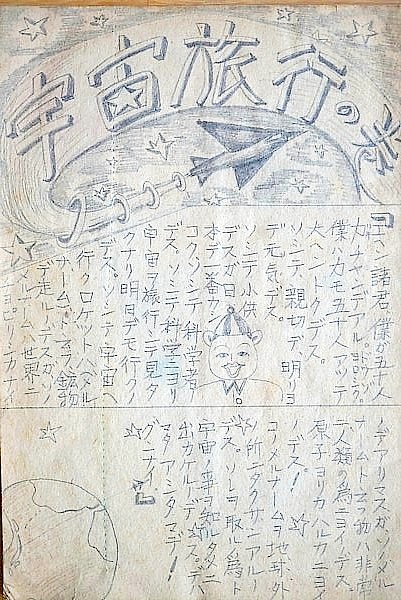 宇宙旅行の巻
「エヘン諸君、僕が五十人
力ナヤンデアル。
僕ハカモ五十人アッテ
大ヘントクデス。
ソシテ、親切デ、明リヨ
デ元気デス。
ソシテ小供
デスガ日
本デ一番カシ
コクソシテ科学者
デス。ソシテ科学ニヨリ
宇宙ヲ旅行シテ見タ
クナリ明日デモ行クノ
デス。ソシテ、宇宙へ
行クロケットハメル
ナームトユフ鉱物
デ走ルノデスガ、ソノ
メルナームハ世界ニ
シカナイ
ノデアリマスガ、ソノメル
ナームトユフ物ハ非常
ニ人類の為ニヨイデス。
原子ヨリカハルカニヨイ
ノデス!
コノメルナームヲ地球外
ノ所ニタクサンアルノ
デス。ソレヲ取ル為ト
宇宙ノ事ヲ知ルタメニ
出カケルノデス。デハ
マタアシタマデ!
グンナイ。」